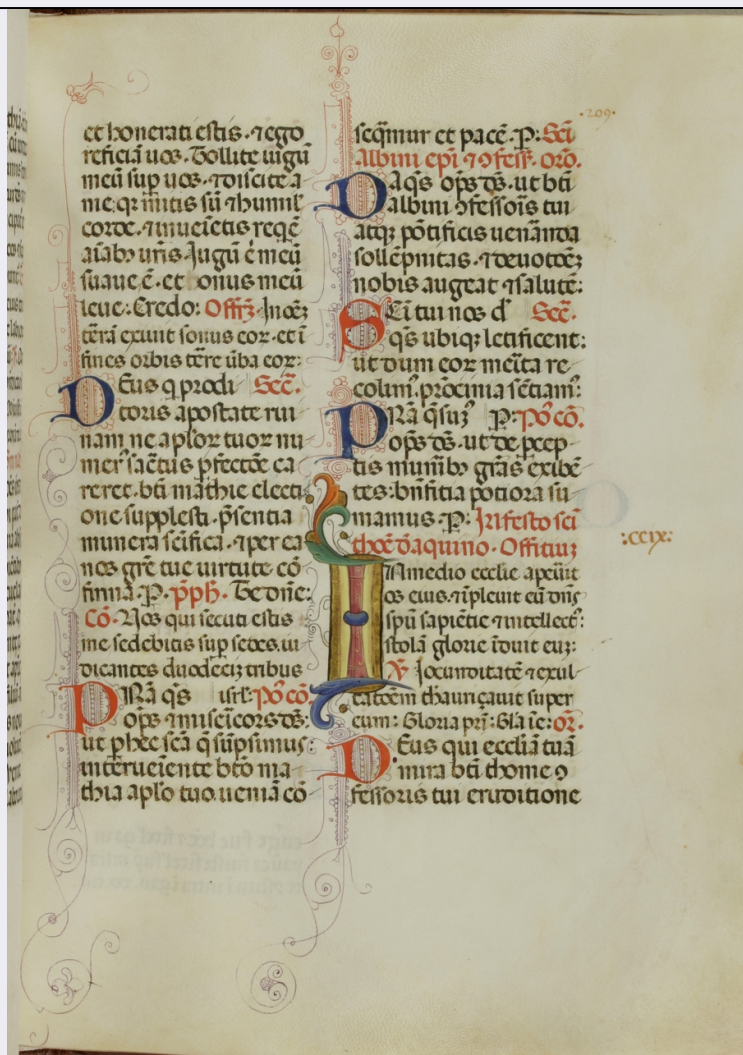 et honerati estis. ⁊ ego
reficiã uos. Tollite iugũ
meũ sup uos. ⁊ discite a
me. qr mitis sũ ⁊ humil'
corde. ⁊ inueĩetis reqẽ
aĩabꝫ uris. Jugũ ẽ meũ
suaue ẽ. et onus meũ
leue: Credo: Offr̃. In oẽꝫ
tẽrã exiuit sonus eoꝝ. et ĩ
fines orbis tẽre ũba eoꝝ:
DEus q prodi Sec̃.
toris apostate rui
nam ne aploꝝ tuoꝝ nu
mer' sac̃tus pfect̃oe ca
reret. bti mathie electi
one supplesti. psentia
munera sc̃ifica. ⁊ per ea
nos grẽ tue uirtute cõ
firma. P. p̃ph. Te dñe:
Cõ. Uos qui secuti estis
me sedebitis sup sedes. iu
dicantes duodeciꝫ tribus
PRã q̃s isrl'. Po cõ.
op̃s ⁊ misẽicors d̃s:
ut p hec sc̃a q̃ sũpsimus:
interueiente bt̃o ma
thia aplo tuo. ueniã cõ
·209·
seqm̃ur et pacẽ. P: Sc̃i
albini ep̃i ⁊ ꝯfess̃. orõ.
DA q̃s op̃s d̃s. ut bt̃i
albini ꝯfessoĩs tui
atqꝫ põtificis ueñanda
sollẽpnitas. ⁊ deuot̃oeꝫ
nobis augeat ⁊ salutẽ:
SC̃i tui nos d' Sec̃.
q̃s ubiqꝫ letificent:
ut dum eoꝝ meĩta re
colim'. pr̃ocinia sẽtiam':
PRã q̃suꝫ P: Po cõ.
op̃s d̃s. ut de pcep
tis munĩbꝫ grãs exibẽ
tes: bñfitia potiora su
mamus. P: In festo sc̃i
thoẽ d'aquino. Offitiuꝫ
:ccix:
IN medio eccl̃ie apẽuit
os eius. ⁊ ĩpleuit eũ dñs
spũ sapiẽtie ⁊ intellect':
stolã glorie ĩduit euꝫ:
℣ Jocunditatẽ ⁊ exul
tat̃oẽm thaurizauit super
eum: Gloria pri: Gl̃a ĩe: or̃.
DEus qui eccl̃iã tuã
mira bt̃i thome ꝯ
fessoris tui eruditione